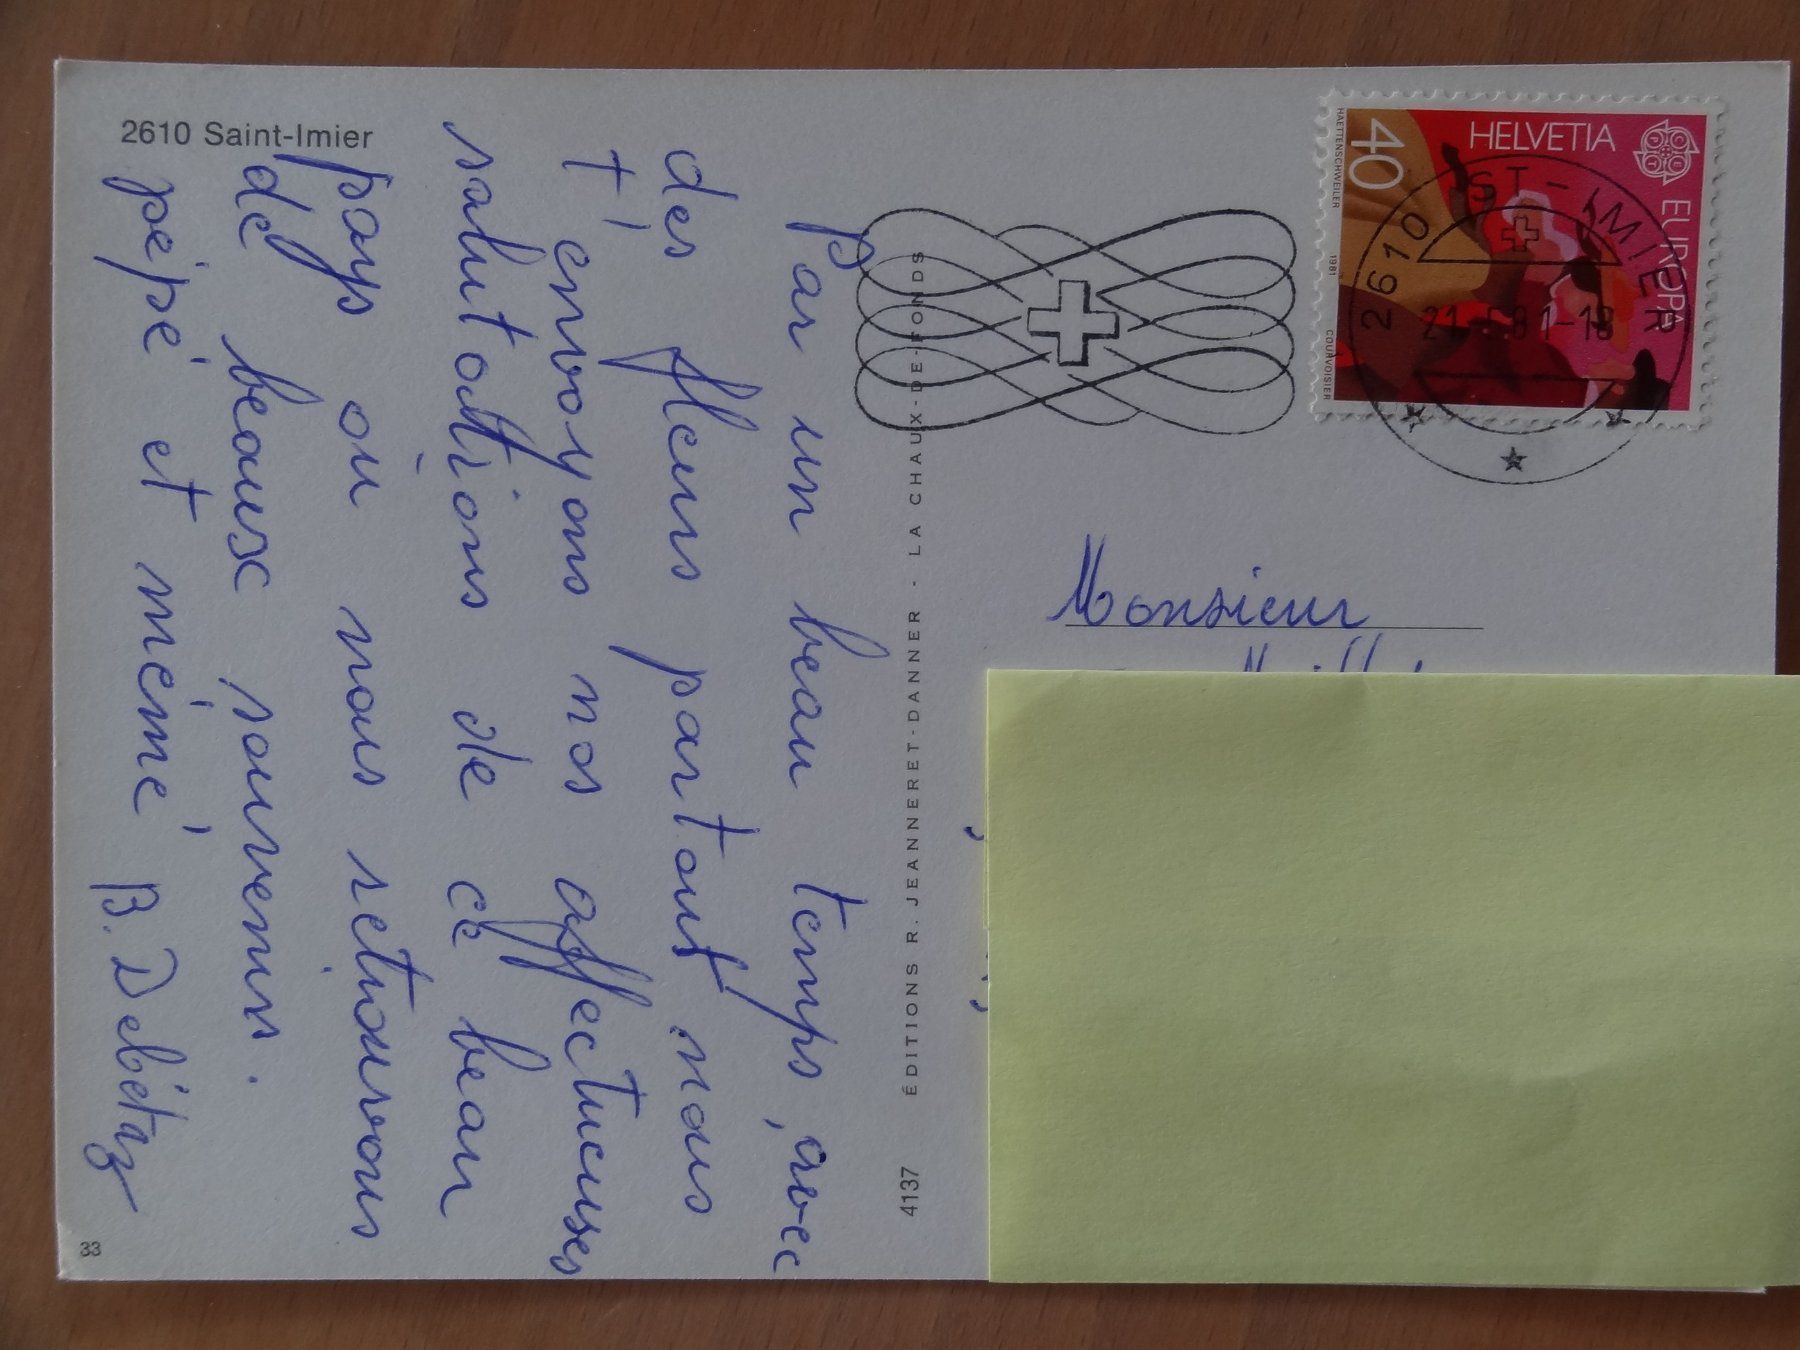 2610 Saint-Imier
Par un beau temps, avec
des fleurs partout nous
t'envoyons nos affectueuses
salutations de ce beau
pays où nous retrouvons
de beaux souvenirs.
pépé et mémé B. Debétaz
33
4137 ÉDITIONS R. JEANNERET-DANNER - LA CHAUX-DE-FONDS
HELVETIA
40
EUROPA
CEPT
HAETTENSCHWEILER 1981 COURVOISIER
2610 ST-IMIER
Monsieur